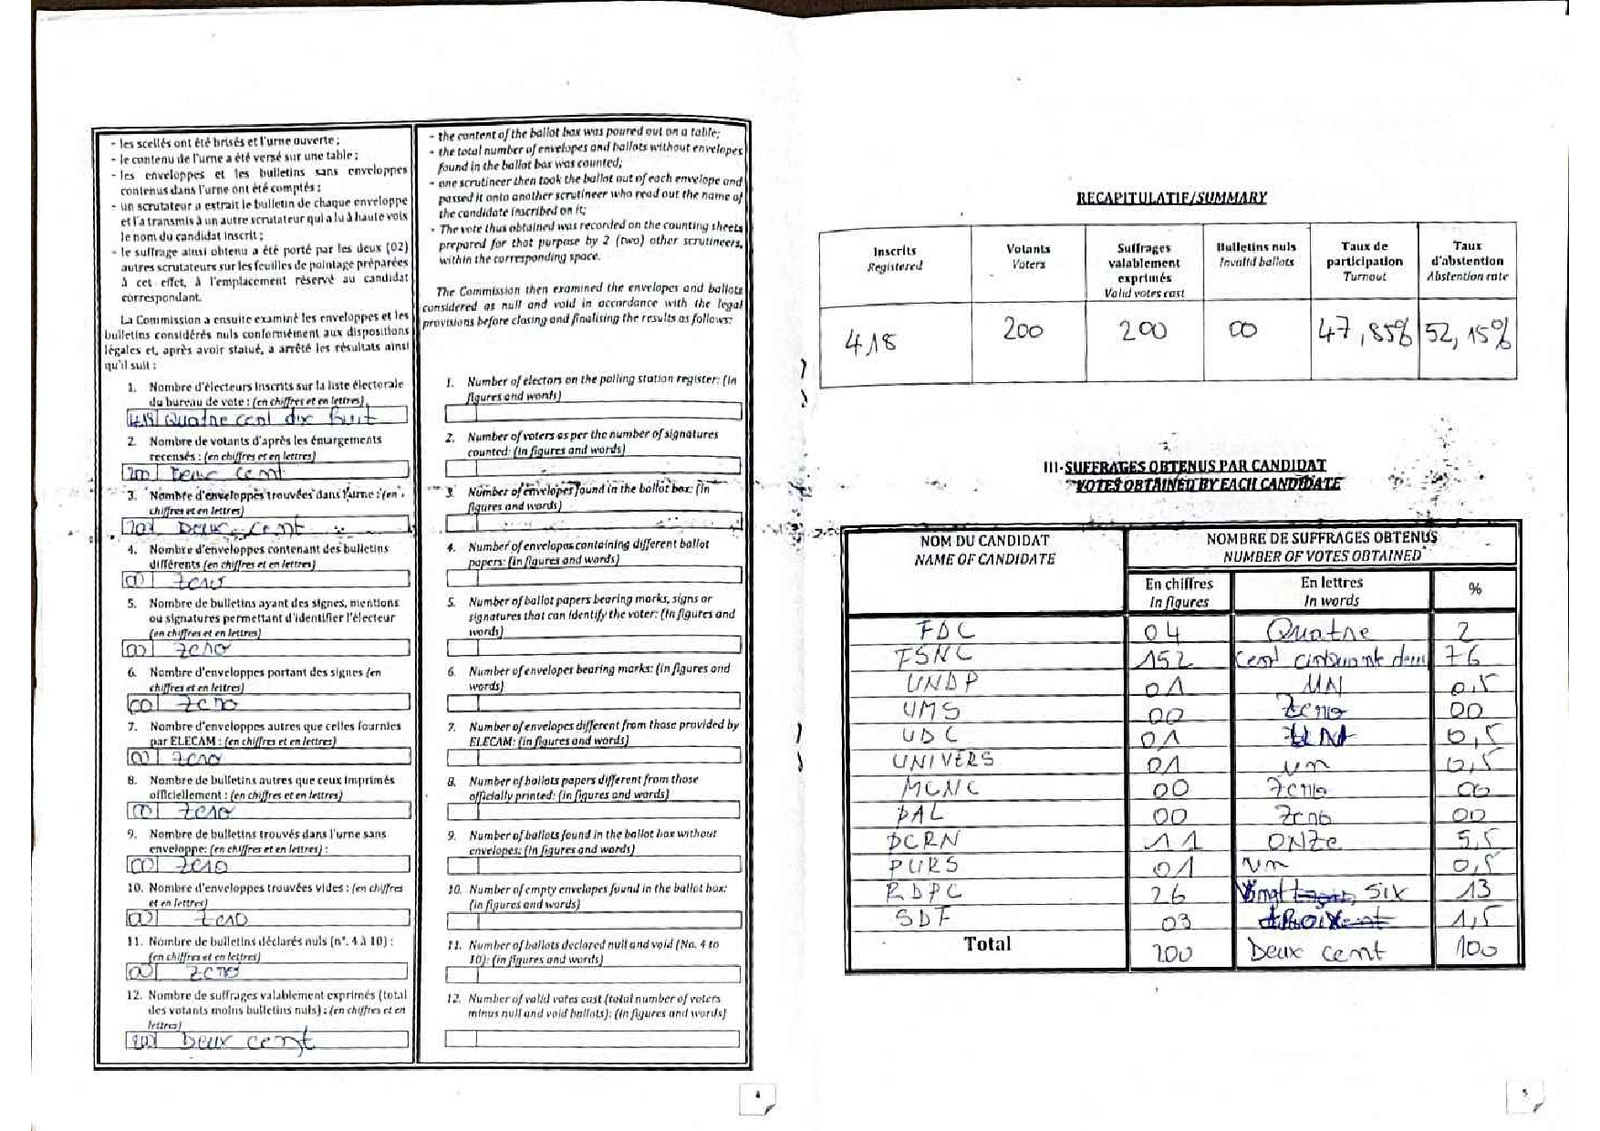 - les scellés ont été brisés et l'urne ouverte ;
- le contenu de l'urne a été versé sur une table ;
- les enveloppes et les bulletins sans enveloppes
contenus dans l'urne ont été comptés ;
- un scrutateur a extrait le bulletin de chaque enveloppe
et l'a transmis à un autre scrutateur qui a lu à haute voix
le nom du candidat inscrit ;
- le suffrage ainsi obtenu a été porté par les deux (02)
autres scrutateurs sur les feuilles de pointage préparées
à cet effet, à l'emplacement réservé au candidat
correspondant.
La Commission a ensuite examiné les enveloppes et les
bulletins considérés nuls conformément aux dispositions
légales et, après avoir statué, a arrêté les résultats ainsi
qu'il suit :
1. Nombre d'électeurs inscrits sur la liste électorale
du bureau de vote : (en chiffres et en lettres)
418 Quatre cent dix huit
2. Nombre de votants d'après les émargements
recensés : (en chiffres et en lettres)
200 Deux cent
3. Nombre d'enveloppes trouvées dans l'urne : (en
chiffres et en lettres)
200 Deux cent
4. Nombre d'enveloppes contenant des bulletins
différents (en chiffres et en lettres)
00 zero
5. Nombre de bulletins ayant des signes, mentions
ou signatures permettant d'identifier l'électeur
(en chiffres et en lettres)
00 zero
6. Nombre d'enveloppes portant des signes (en
chiffres et en lettres)
00 zero
7. Nombre d'enveloppes autres que celles fournies
par ELECAM : (en chiffres et en lettres)
00 zero
8. Nombre de bulletins autres que ceux imprimés
officiellement : (en chiffres et en lettres)
00 zero
9. Nombre de bulletins trouvés dans l'urne sans
enveloppe: (en chiffres et en lettres) :
00 zero
10. Nombre d'enveloppes trouvées vides : (en chiffres
et en lettres)
00 zero
11. Nombre de bulletins déclarés nuls (n°. 4 à 10) :
(en chiffres et en lettres)
00 zero
12. Nombre de suffrages valablement exprimés (total
des votants moins bulletins nuls) : (en chiffres et en
lettres)
200 Deux cent
- the content of the ballot box was poured out on a table;
- the total number of envelopes and ballots without envelopes
found in the ballot box was counted;
- one scrutineer then took the ballot out of each envelope and
passed it onto another scrutineer who read out the name of
the candidate inscribed on it;
- The vote thus obtained was recorded on the counting sheets
prepared for that purpose by 2 (two) other scrutineers,
within the corresponding space.
The Commission then examined the envelopes and ballots
considered as null and void in accordance with the legal
provisions before closing and finalising the results as follows:
1. Number of electors on the polling station register: (in
figures and words)
2. Number of voters as per the number of signatures
counted: (in figures and words)
3. Number of envelopes found in the ballot box: (in
figures and words)
4. Number of envelopes containing different ballot
papers: (in figures and words)
5. Number of ballot papers bearing marks, signs or
signatures that can identify the voter: (in figures and
words)
6. Number of envelopes bearing marks: (in figures and
words)
7. Number of envelopes different from those provided by
ELECAM: (in figures and words)
8. Number of ballots papers different from those
officially printed: (in figures and words)
9. Number of ballots found in the ballot box without
envelopes: (in figures and words)
10. Number of empty envelopes found in the ballot box:
(in figures and words)
11. Number of ballots declared null and void (No. 4 to
10): (in figures and words)
12. Number of valid votes cast (total number of voters
minus null and void ballots): (in figures and words)
4
RECAPITULATIF/SUMMARY
Inscrits Registered Votants Voters Suffrages valablement exprimés Valid votes cast Bulletins nuls Invalid ballots Taux de participation Turnout Taux d'abstention Abstention rate
418 200 200 00 47,85% 52,15%
III-SUFFRAGES OBTENUS PAR CANDIDAT
VOTES OBTAINED BY EACH CANDIDATE
NOM DU CANDIDAT NOMBRE DE SUFFRAGES OBTENUS
NAME OF CANDIDATE NUMBER OF VOTES OBTAINED
En chiffres En lettres %
In figures In words
FDC 04 Quatre 2
FSNC 152 Cent cinquante deux 76
UNDP 01 UN 0,5
UMS 00 Zero 00
UDC 01 UN 0,5
UNIVERS 01 un 0,5
MCNC 00 Zero 00
PAL 00 Zero 00
PCRN 11 ONZe 5,5
PURS 01 un 0,5
RDPC 26 Vingt six 13
SDF 03 1,5
Total 200 Deux cent 100
5